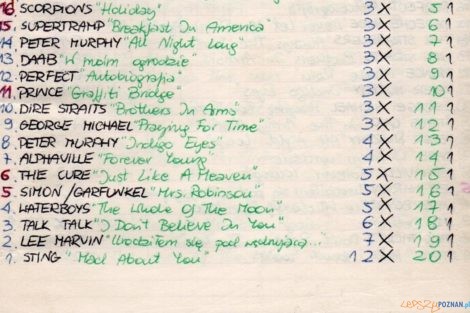 16. SCORPIONS "Holiday" 3X 5 1
15. SUPERTRAMP "Breakfast In America 3X 6 1
14. PETER MURPHY "All Night Long" 3X 7 1
13. DAAB "W moim ogrodzie" 3X 8 1
12. PERFECT "Autobiografia" 3X 9 1
11. PRINCE "Graffiti Bridge" 3X 10 1
10. DIRE STRAITS "Brothers In Arms" 3X 11 1
9. GEORGE MICHAEL "Praying For Time" 3X 12 1
8. PETER MURPHY "Indigo Eyes" 4X 13 1
7. ALPHAVILLE "Forever Young" 4X 14 1
6. THE CURE "Just Like A Heaven" 5X 15 1
5. SIMON/GARFUNKEL "Mrs. Robinson" 5X 16 1
4. WATERBOYS "The Whole Of The Moon" 5X 17 1
3. TALK TALK "I Don't Believe In You" 6X 18 1
2. LEE MARVIN "Urodziłem się pod 7X 19 1
1. STING "Mad About You" 12X 20 1
LepszyPOZNAN.pl